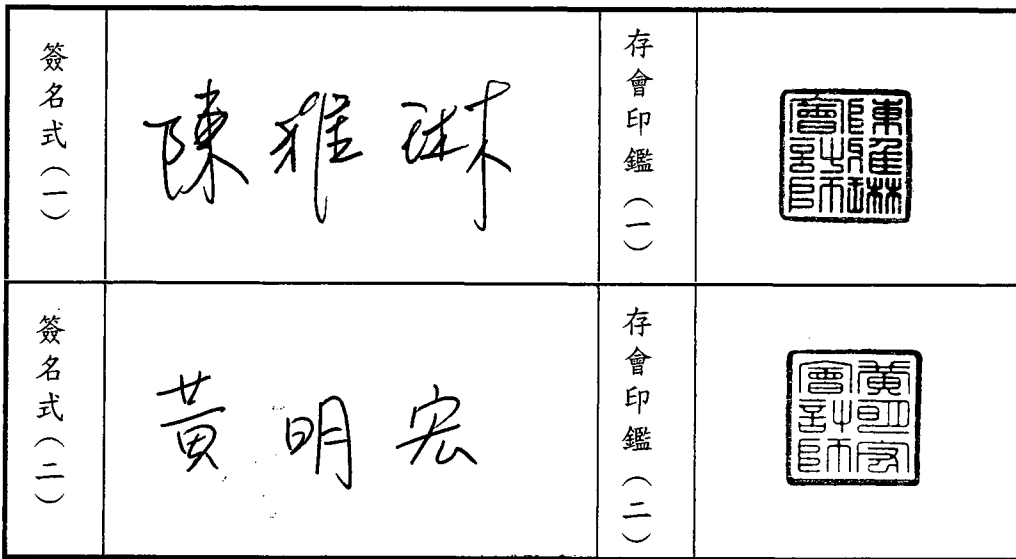 簽名式（一）
陳雅琳
存會印鑑（一）
陳雅琳會計師
簽名式（二）
黃明宏
存會印鑑（二）
黃明宏會計師